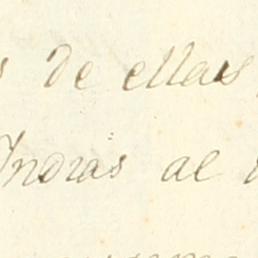 de ellas
Indras al